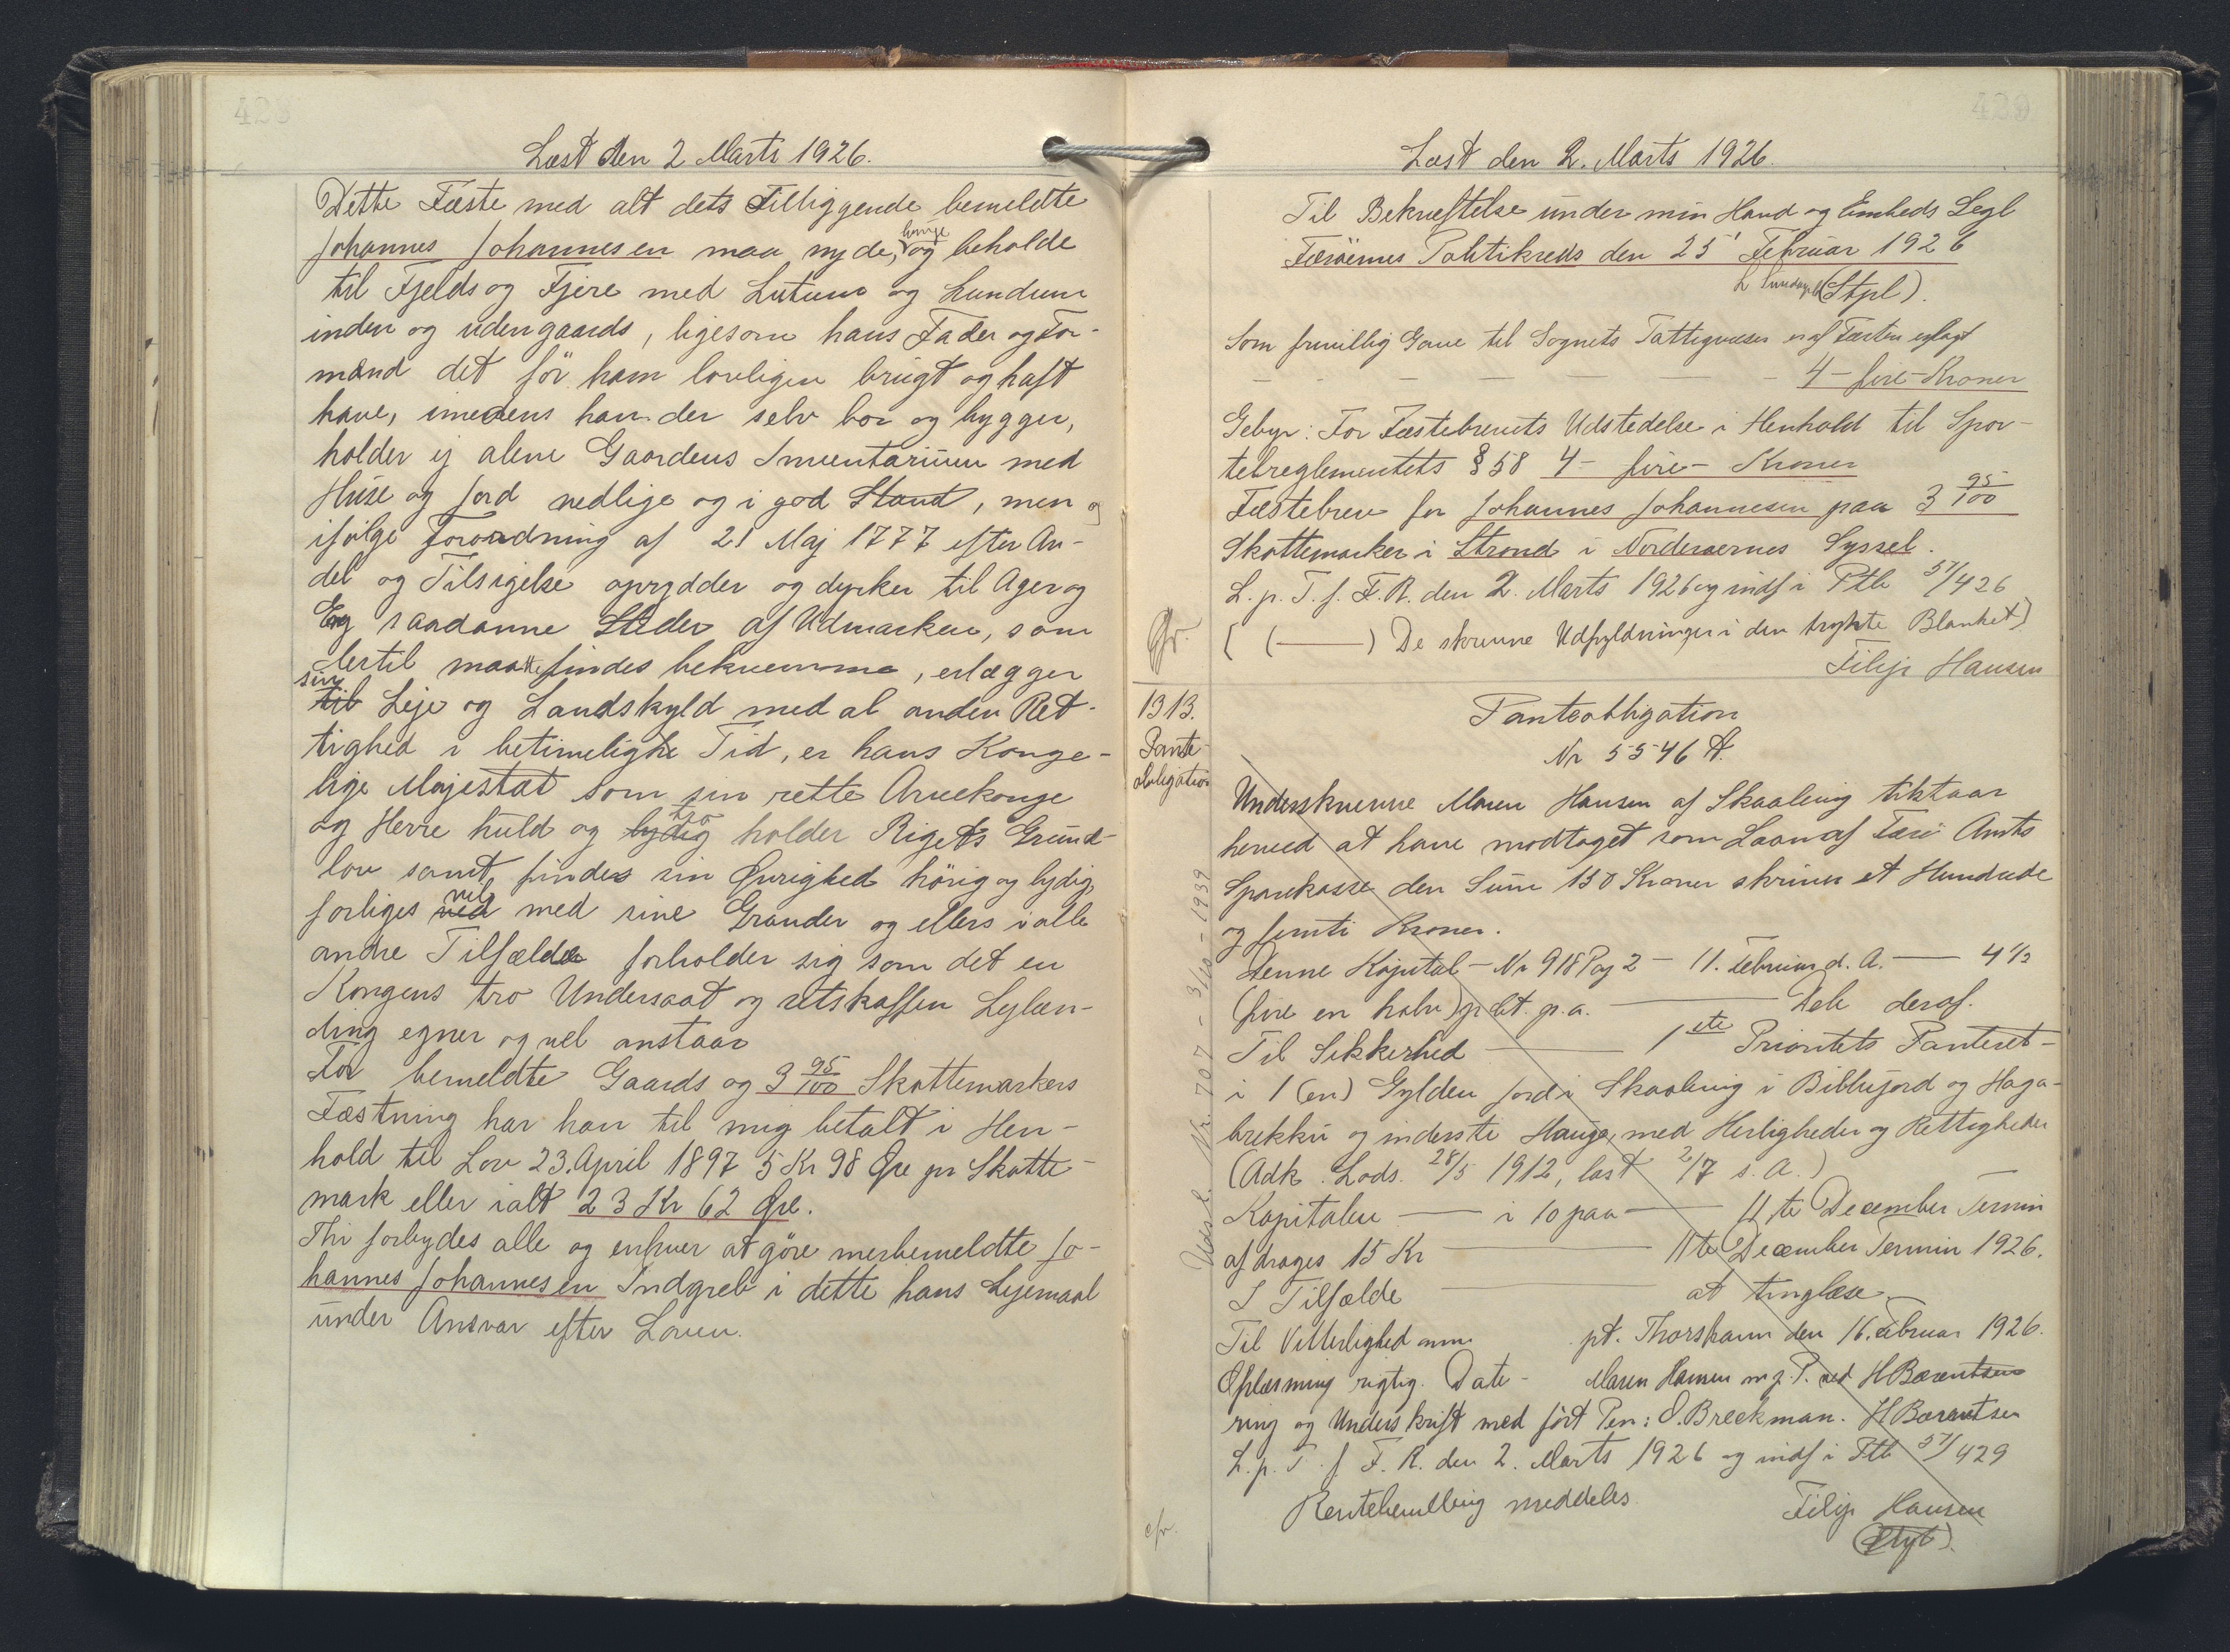 Læst den 2 Marts 1926.
Dette Fæste med alt dets Tilliggende bemeldte
Johannes Johannesen maa nyde, bruge og beholde
til Fjelds og Fjere med Lutum og Lundum
inden og udengaards, ligesom hans Fader og For-
mænd det för ham lovligen brugt og haft
have, imedens han der selv bor og bygger,
holder ej alene Gaardens Inventarium med
Huse og Jord vedlige og i god Stand, men og
ifølge Forordning af 21 Maj 1777 efter An-
del og Tilsigelse oprydder og dyrker til Ager og
Eng saadanne Steder af Udmarken, som
dertil maatte findes bekvemme, erlægger
sin til Leje og Landskyld med al anden Ret-
tighed i betimelighe Tid, er hans Konge-
lige Majestæt som sin rette Arvekonge
og Herre huld og lydig tro holder Rigets Grund-
lov samt findes sin Øvrighed hörig og lydig,
forliges ved vel med sine Grander og ellers i alle
andre Tilfælde forholder sig som det en
Kongens tro Undersaat og retskaffen Lejlæn-
ding egner og vel anstaar
For bemeldte Gaards og 3 95/100 Skattemarkers
Fæstning har han til mig betalt i Hen-
hold til Lov 23. April 1897 5 Kr 98 Øre pr Skatte-
mark eller ialt 23 Kr 62 Øre.
Thi forbydes alle og enhver at göre merbemeldte Jo-
hannes Johannesen Indgreb i dette hans Lejemaal
under Ansvar efter Loven.
429
Læst den 2. Marts 1926.
Til Bekræftelse under min Haand og Embeds Segl
Færöernes Politikreds den 25' Februar 1926
(Stpl).
Som frivillig Gave til Sognets Fattigvæsen er af Fæsten erlagt
4 - fire - Kroner
Gebyr: For Fæstebrevets Udstedelse i Henhold til Spor-
telreglementets § 58 4 - fire - Kroner
Fæstebrev for Johannes Johannesen paa 3 95/100
Skattemarker i Strond i Norderøernes Syssel.
L. p. T. f. F. R. den 2. Marts 1926 og indf i Ptb 57/426
( (——) De skrevne Udfyldninger i den trykte Blanket)
Gr.
Filip Hansen
1313.
Pante-
Obligation
Panteobligation
Nr 5546 A.
Underskrevne Maren Hansen af Skaalevig tilstaar
herved at have modtaget som Laan af Færö Amts
Sparekasse den Sum 150 Kroner skriver et Hundrede
og femti Kroner.
Denne Kapital - Nr 918 Pag 2 - 11. Februar d. A. —— 4 1/2
(fire en halv) p Ct. p. a. —— Dele deraf.
Til Sikkerhed —— 1ste Prioritets Panteret-
i 1 (en) Gylden Jord i Skaalevig i Bibbujord og Haga-
brekku og inderste Hauge, med Herligheder og Rettigheder
(Adk. Lods. 28/5 1912, læst 2/7 s. A.)
Kapitalen —— i 10 paa —— 11te December Termin
afdrages 15 Kr —— 11te December Termin 1926.
I Tilfælde —— at tinglæse
Til Vitterlighed om pt. Thorshavn den 16. Februar 1926.
Oplæsning rigtig Date- Maren Hansen m. f. P. ved H Bærentsen
ring og Underskrift med ført Pen: O. Breckman. H Bærentsen
L. p. T. f F. R. den 2. Marts 1926 og indf i Ptb 57/429
Rentehemling meddeles. Filip Hansen
(Stpl).
Udsl. Nr. 707 - 3/10 - 1939
cfr.